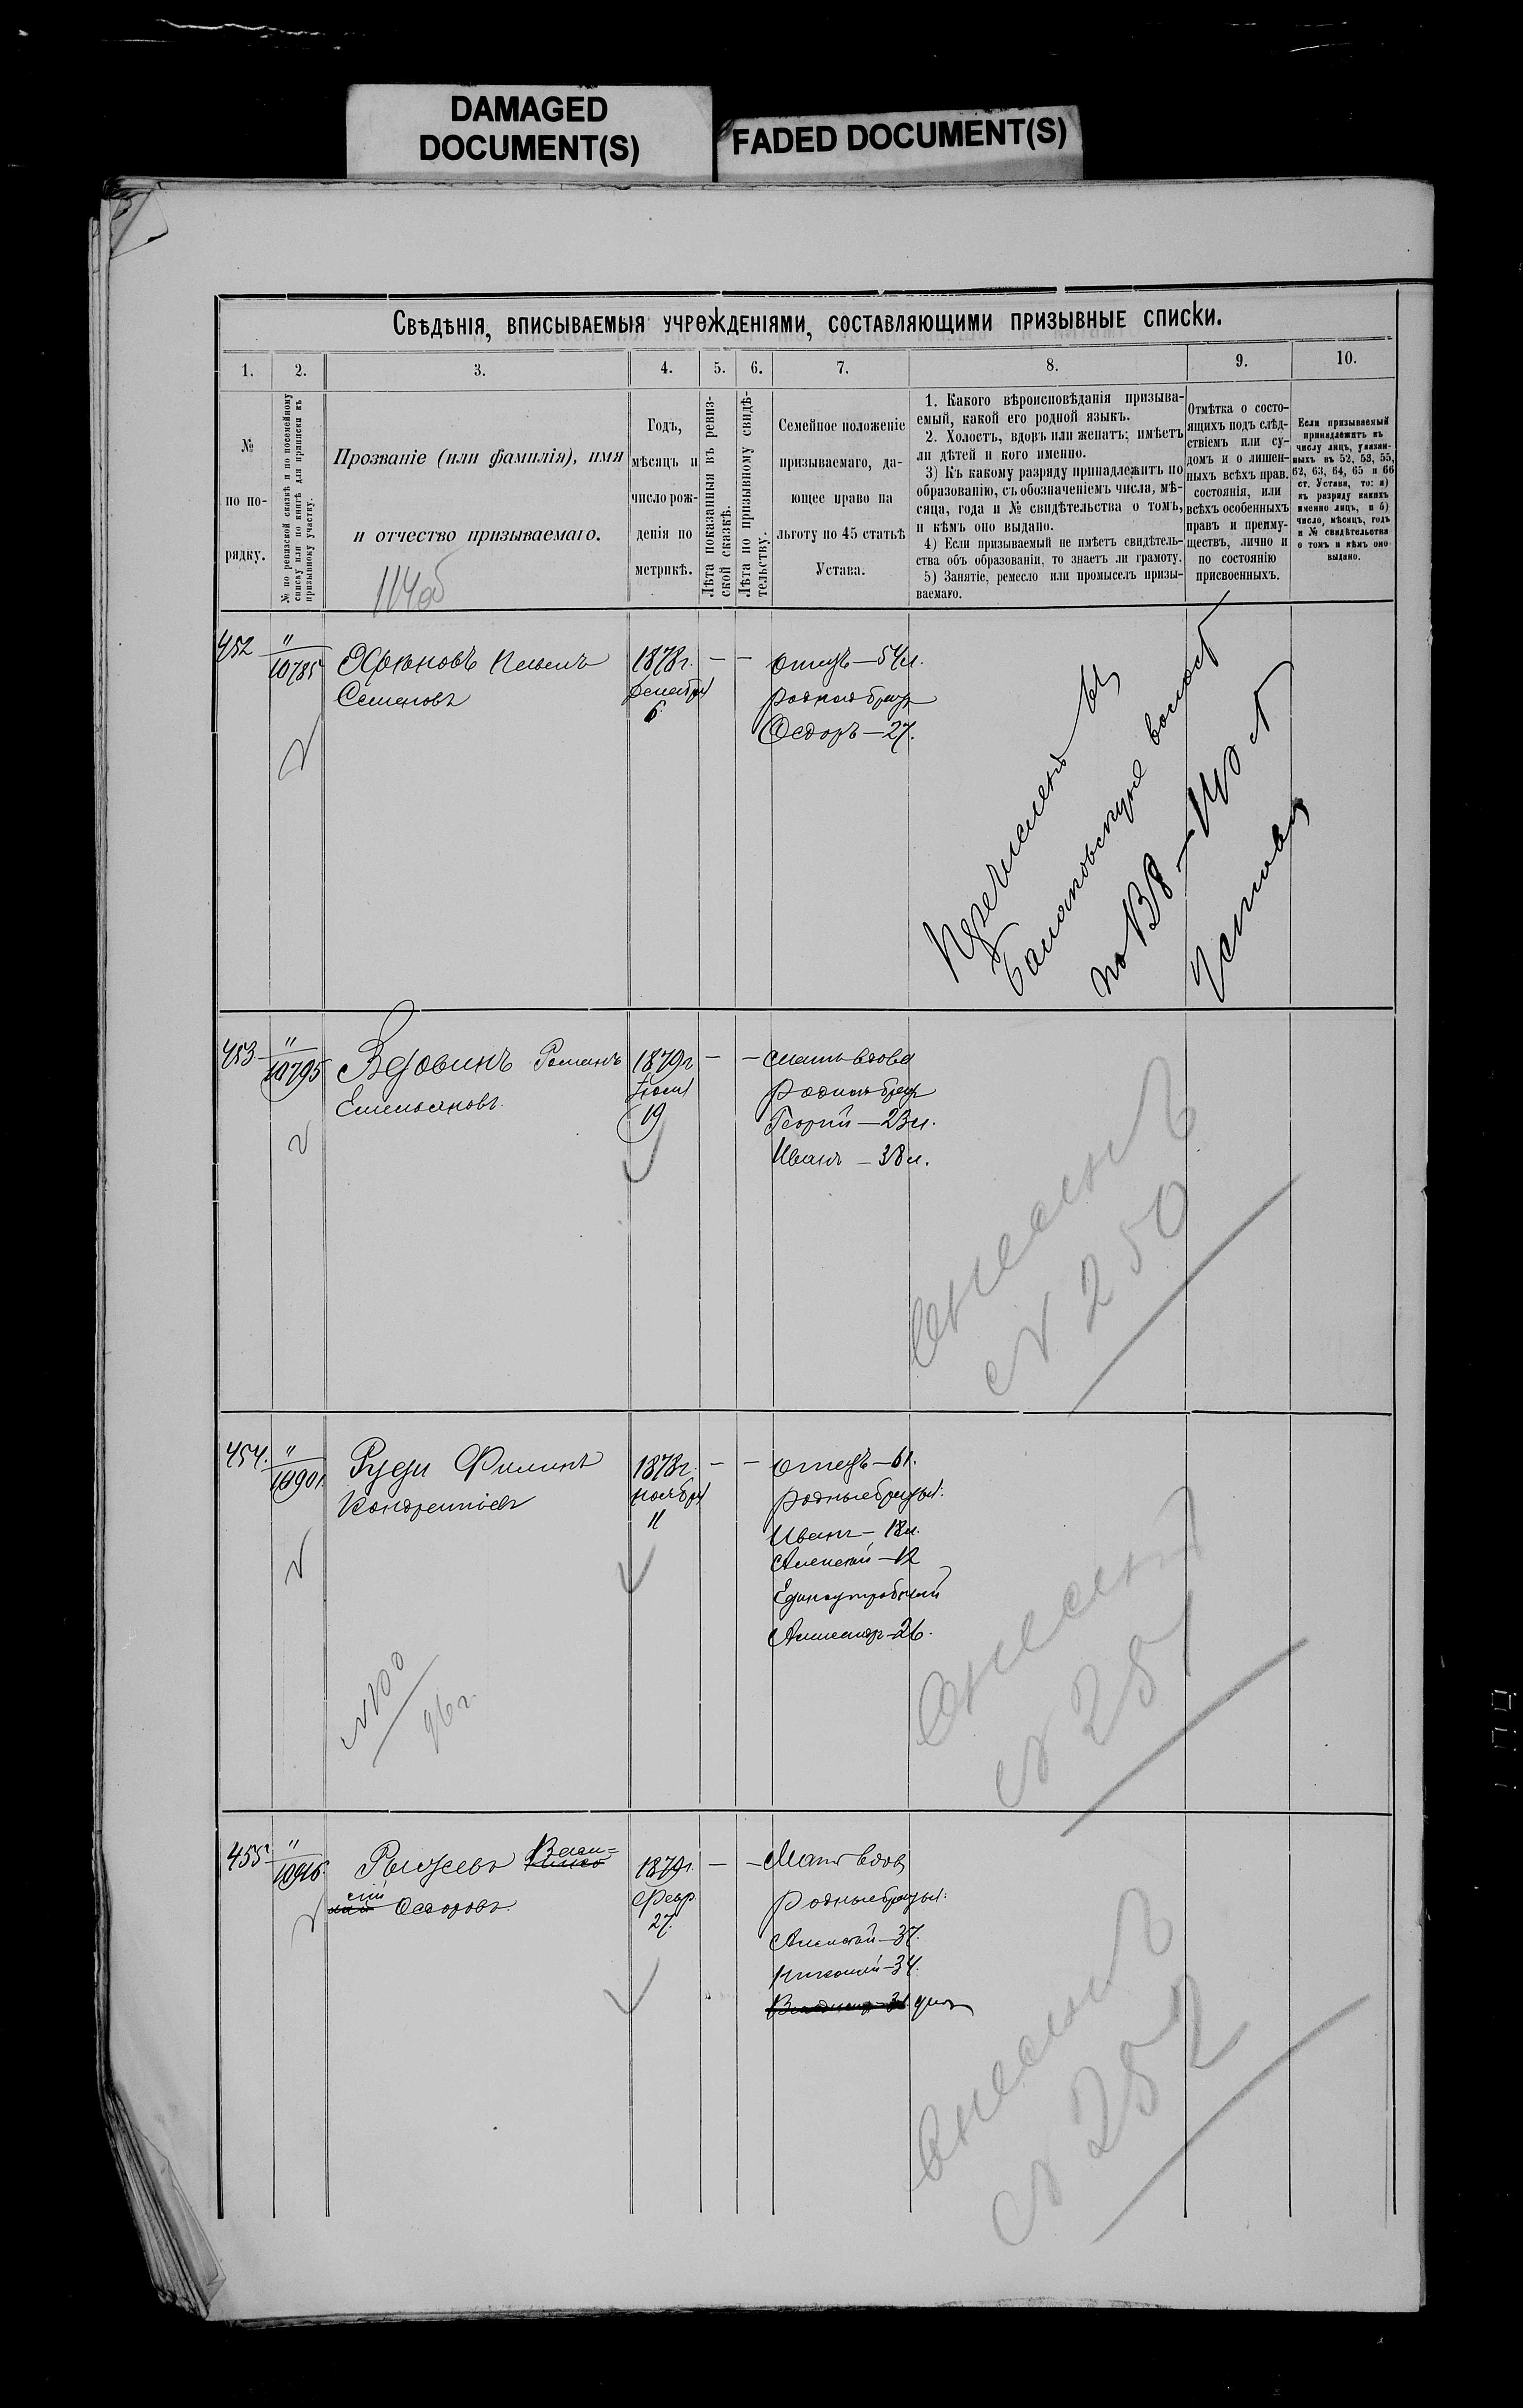 DAMAGED
DOCUMENT(S)
FADED DOCUMENT(S)
Свѣдѣнія, вписываемыя учрежденіями, составляющими призывные списки.
1.
2.
3.
4.
5.
6.
7.
8.
9.
10.
№
по по-
рядку.
№ по ревизской сказкѣ и по посемейному
списку или по книгѣ для приписки къ
призывному участку.
Прозваніе (или фамилія), имя
и отчество призываемаго.
Годъ,
мѣсяцъ и
число рож-
денія по
метрикѣ.
Лѣта показанныя въ ревиз-
ской сказкѣ.
Лѣта по призывному свидѣ-
тельству.
Семейное положеніе
призываемаго, да-
ющее право на
льготу по 45 статьѣ
Устава.
1. Какого вѣроисповѣданія призыва-
емый, какой его родной языкъ.
2. Холостъ, вдовъ или женатъ; имѣетъ
ли дѣтей и кого именно.
3) Къ какому разряду принадлежитъ по
образованію, съ обозначеніемъ числа, мѣ-
сяца, года и № свидѣтельства о томъ,
и кѣмъ оно выдано.
4) Если призываемый не имѣетъ свидѣтель-
ства объ образованіи, то знаетъ ли грамоту.
5) Занятіе, ремесло или промыселъ призы-
ваемаго.
Отмѣтка о состо-
ящихъ подъ слѣд-
ствіемъ или су-
домъ и о лишен-
ныхъ всѣхъ прав.
состоянія, или
всѣхъ особенныхъ
правъ и преиму-
ществъ, лично и
по состоянію
присвоенныхъ.
Если призываемый
принадлежитъ къ
числу лицъ, указан-
ныхъ въ 52, 53, 55,
62, 63, 64, 65 и 66
ст. Устава, то: а)
къ разряду какихъ
именно лицъ, и б)
число, мѣсяцъ, годъ
и № свидѣтельства
о томъ и кѣмъ оно
выдано.
452
"
10785
Семеновъ
1878г. — —
декабря
6
отецъ — 54 л.
родной братъ
Ѳедоръ — 27.
Перечисленъ въ
Балаковскую волост
453
"
10795
Вдовинъ Романъ
Емельяновъ
1879г — —
19
мать вдова
родной братъ
Георгій — 23 л.
Иванъ — 38 л.
Внесенъ
№ 250
454.
"
Руди Филипъ
Кондратьевъ
1878г. — —
ноября
11
отецъ — 61.
родные братья:
Иванъ — 18 л.
Алексѣй — 12
Единоутробный
Александръ — 26.
№ 100
96 г.
Внесенъ
№ 251
455
"
Васи-
сій
Ѳедоровъ
1879г. — —
Февр
27.
Мать вдов
родные братья:
Алексѣй — 37.
Николай — 34.
Внесенъ
№ 252